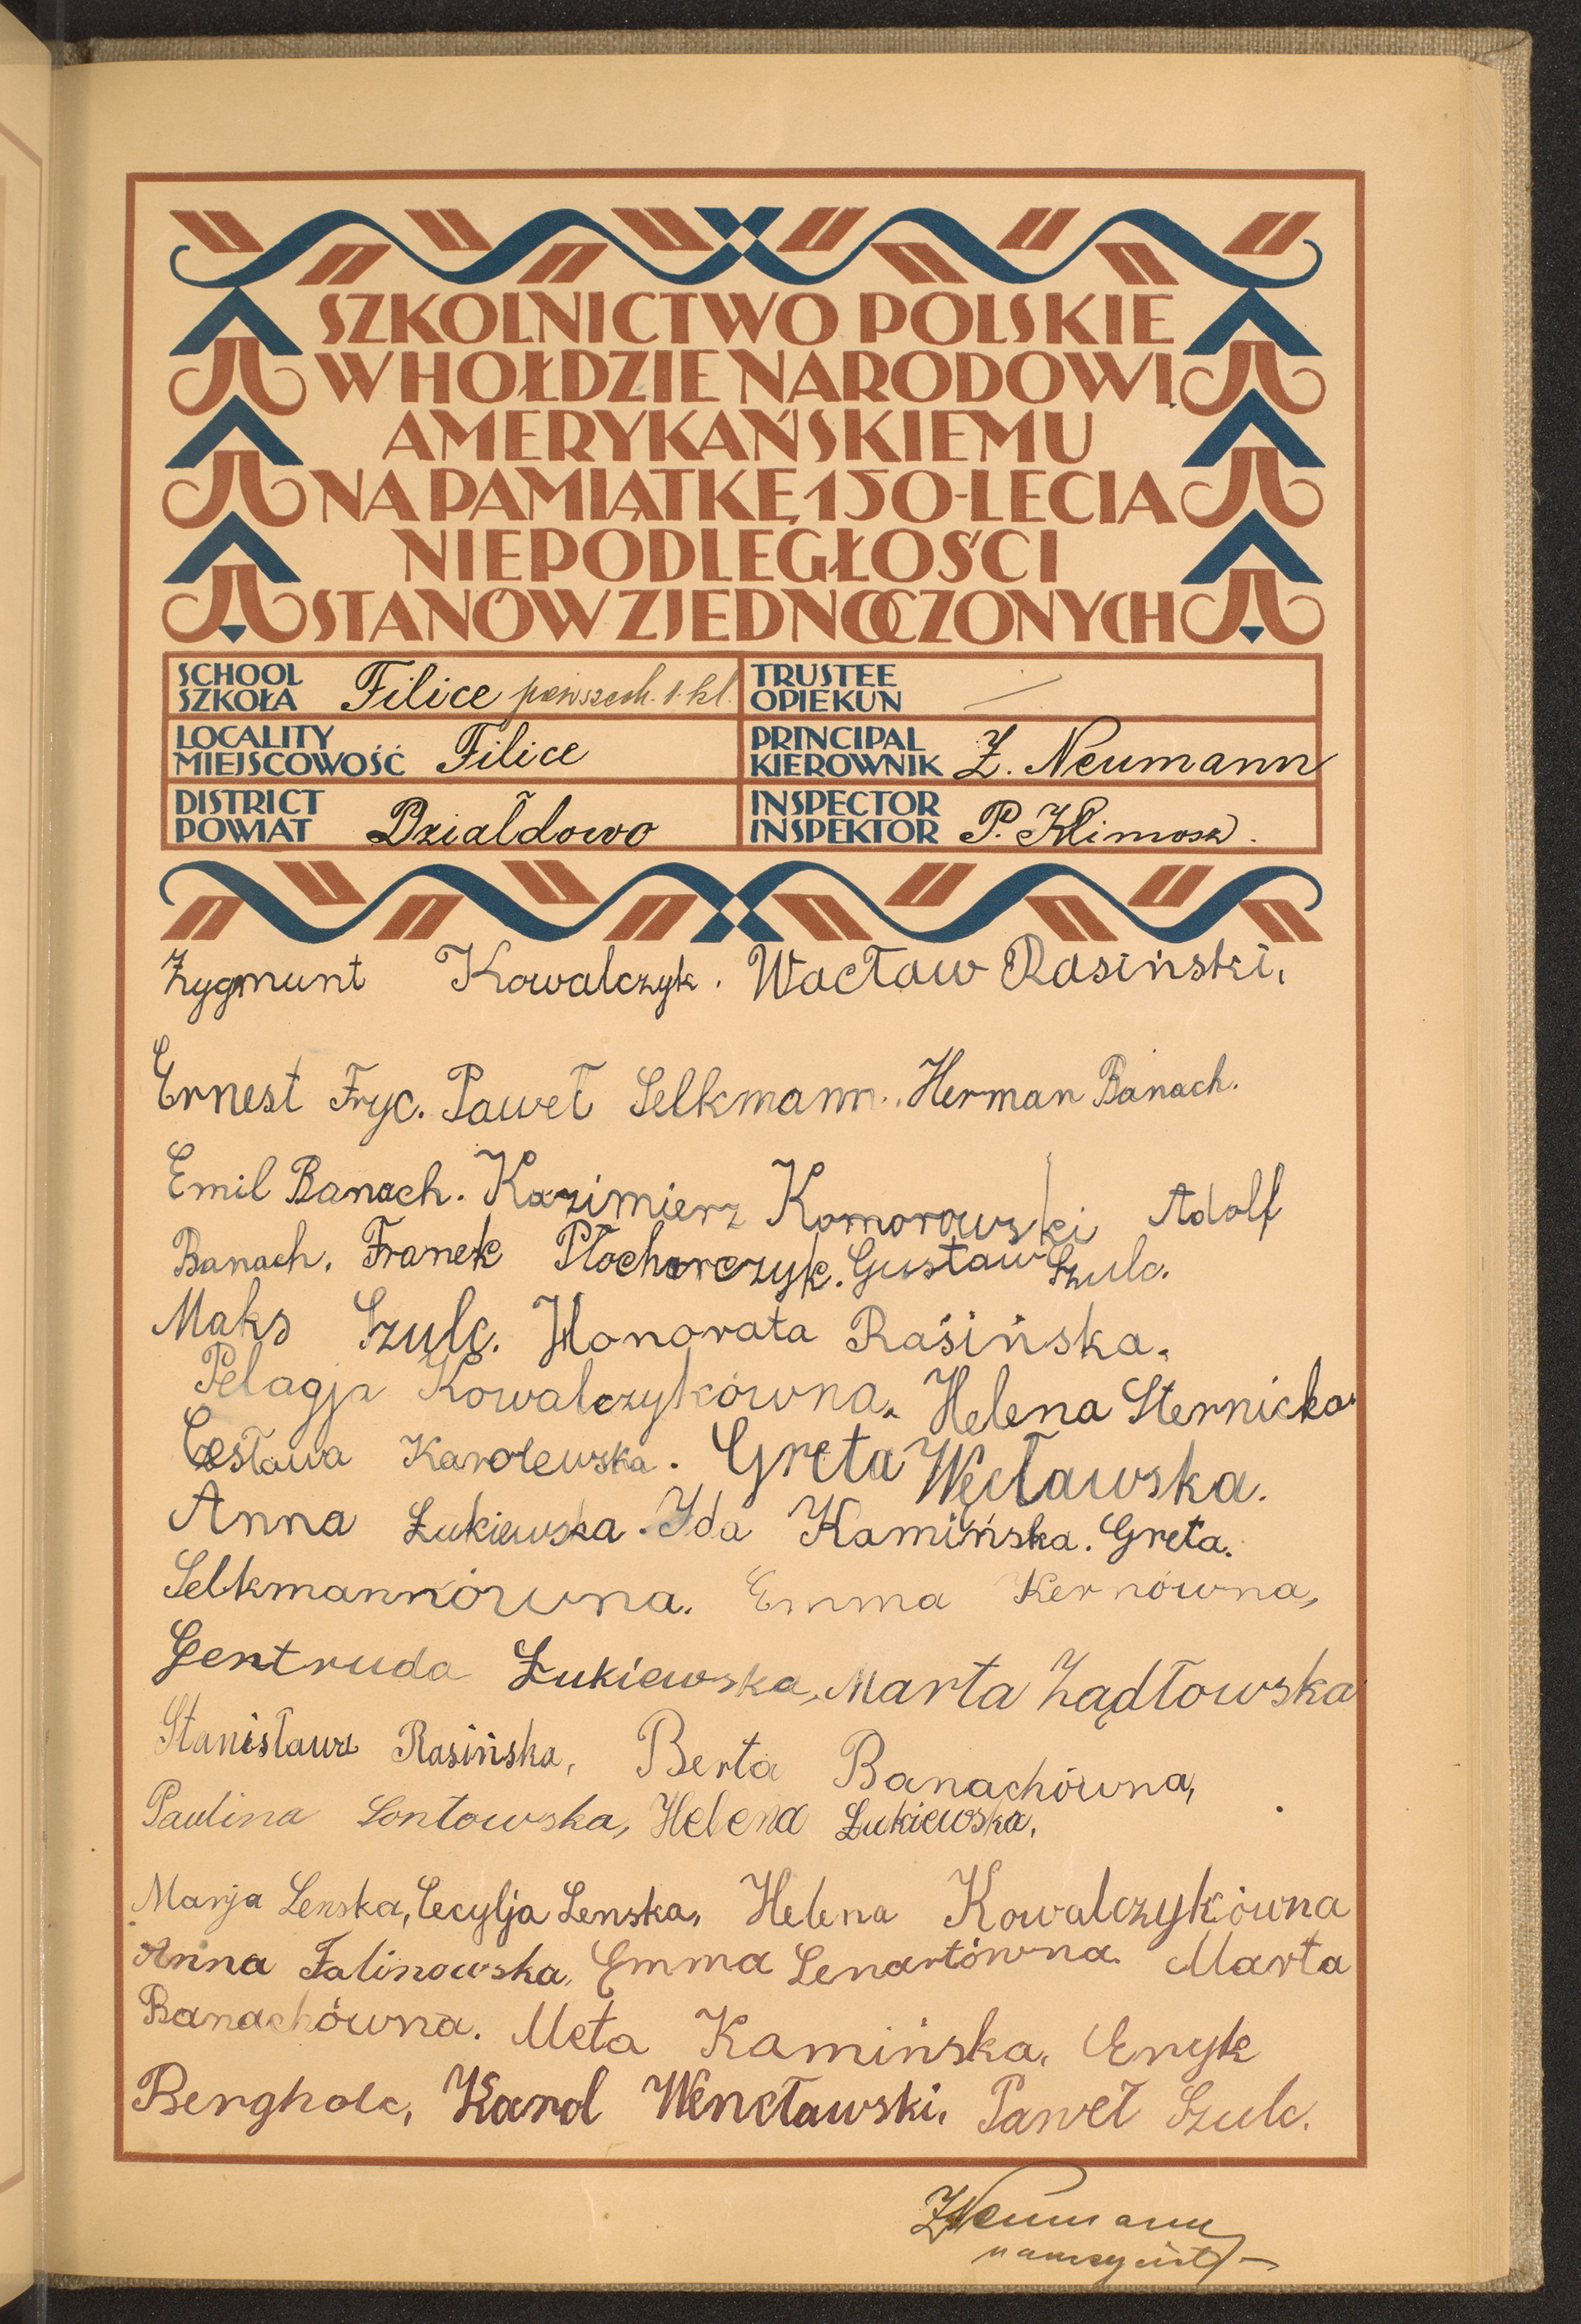 SZKOLNICTWO POLSKIE
W HOŁDZIE NARODOWI
AMERYKAŃSKIEMU
NA PAMIĄTKĘ 150-LECIA
NIEPODLEGŁOŚCI
STANÓW ZJEDNOCZONYCH
SCHOOL
SZKOŁA Filice powszech. 1. kl.
TRUSTEE
OPIEKUN —
LOCALITY
MIEJSCOWOŚĆ Filice
PRINCIPAL
KIEROWNIK Z. Neumann
DISTRICT
POWIAT Działdowo
INSPECTOR
INSPEKTOR P. Klimosz.
Zygmunt Kowalczyk. Wacław Rasiński,
Ernest Fryc. Paweł Selkmann. Herman Banach.
Emil Banach. Kazimierz Komorowski Adolf
Banach. Franek Płocharczyk. Gustaw Szulc.
Maks Szulc. Honorata Raśińska.
Pelagja Kowalczykówna. Helena Sternicka
Czesława Karolewska. Greta Węcławska.
Anna Łukiewska. Ida Kamińska. Greta.
Selkmannówna. Emma Kernówna,
Gertruda Łukiewska, Marta Żądłowska
Stanisława Rasińska, Berta Banachówna,
Paulina Lontowska, Helena Łukiewska,
Marja Lenska, Cecylja Lenska, Helena Kowalczykówna
Anna Falinowska, Emma Lenartówna. Marta
Banachówna. Meta Kamińska, Eryk
Bergholc, Karol Wencławski, Paweł Szulc.
Z Neumann
nauczyciel